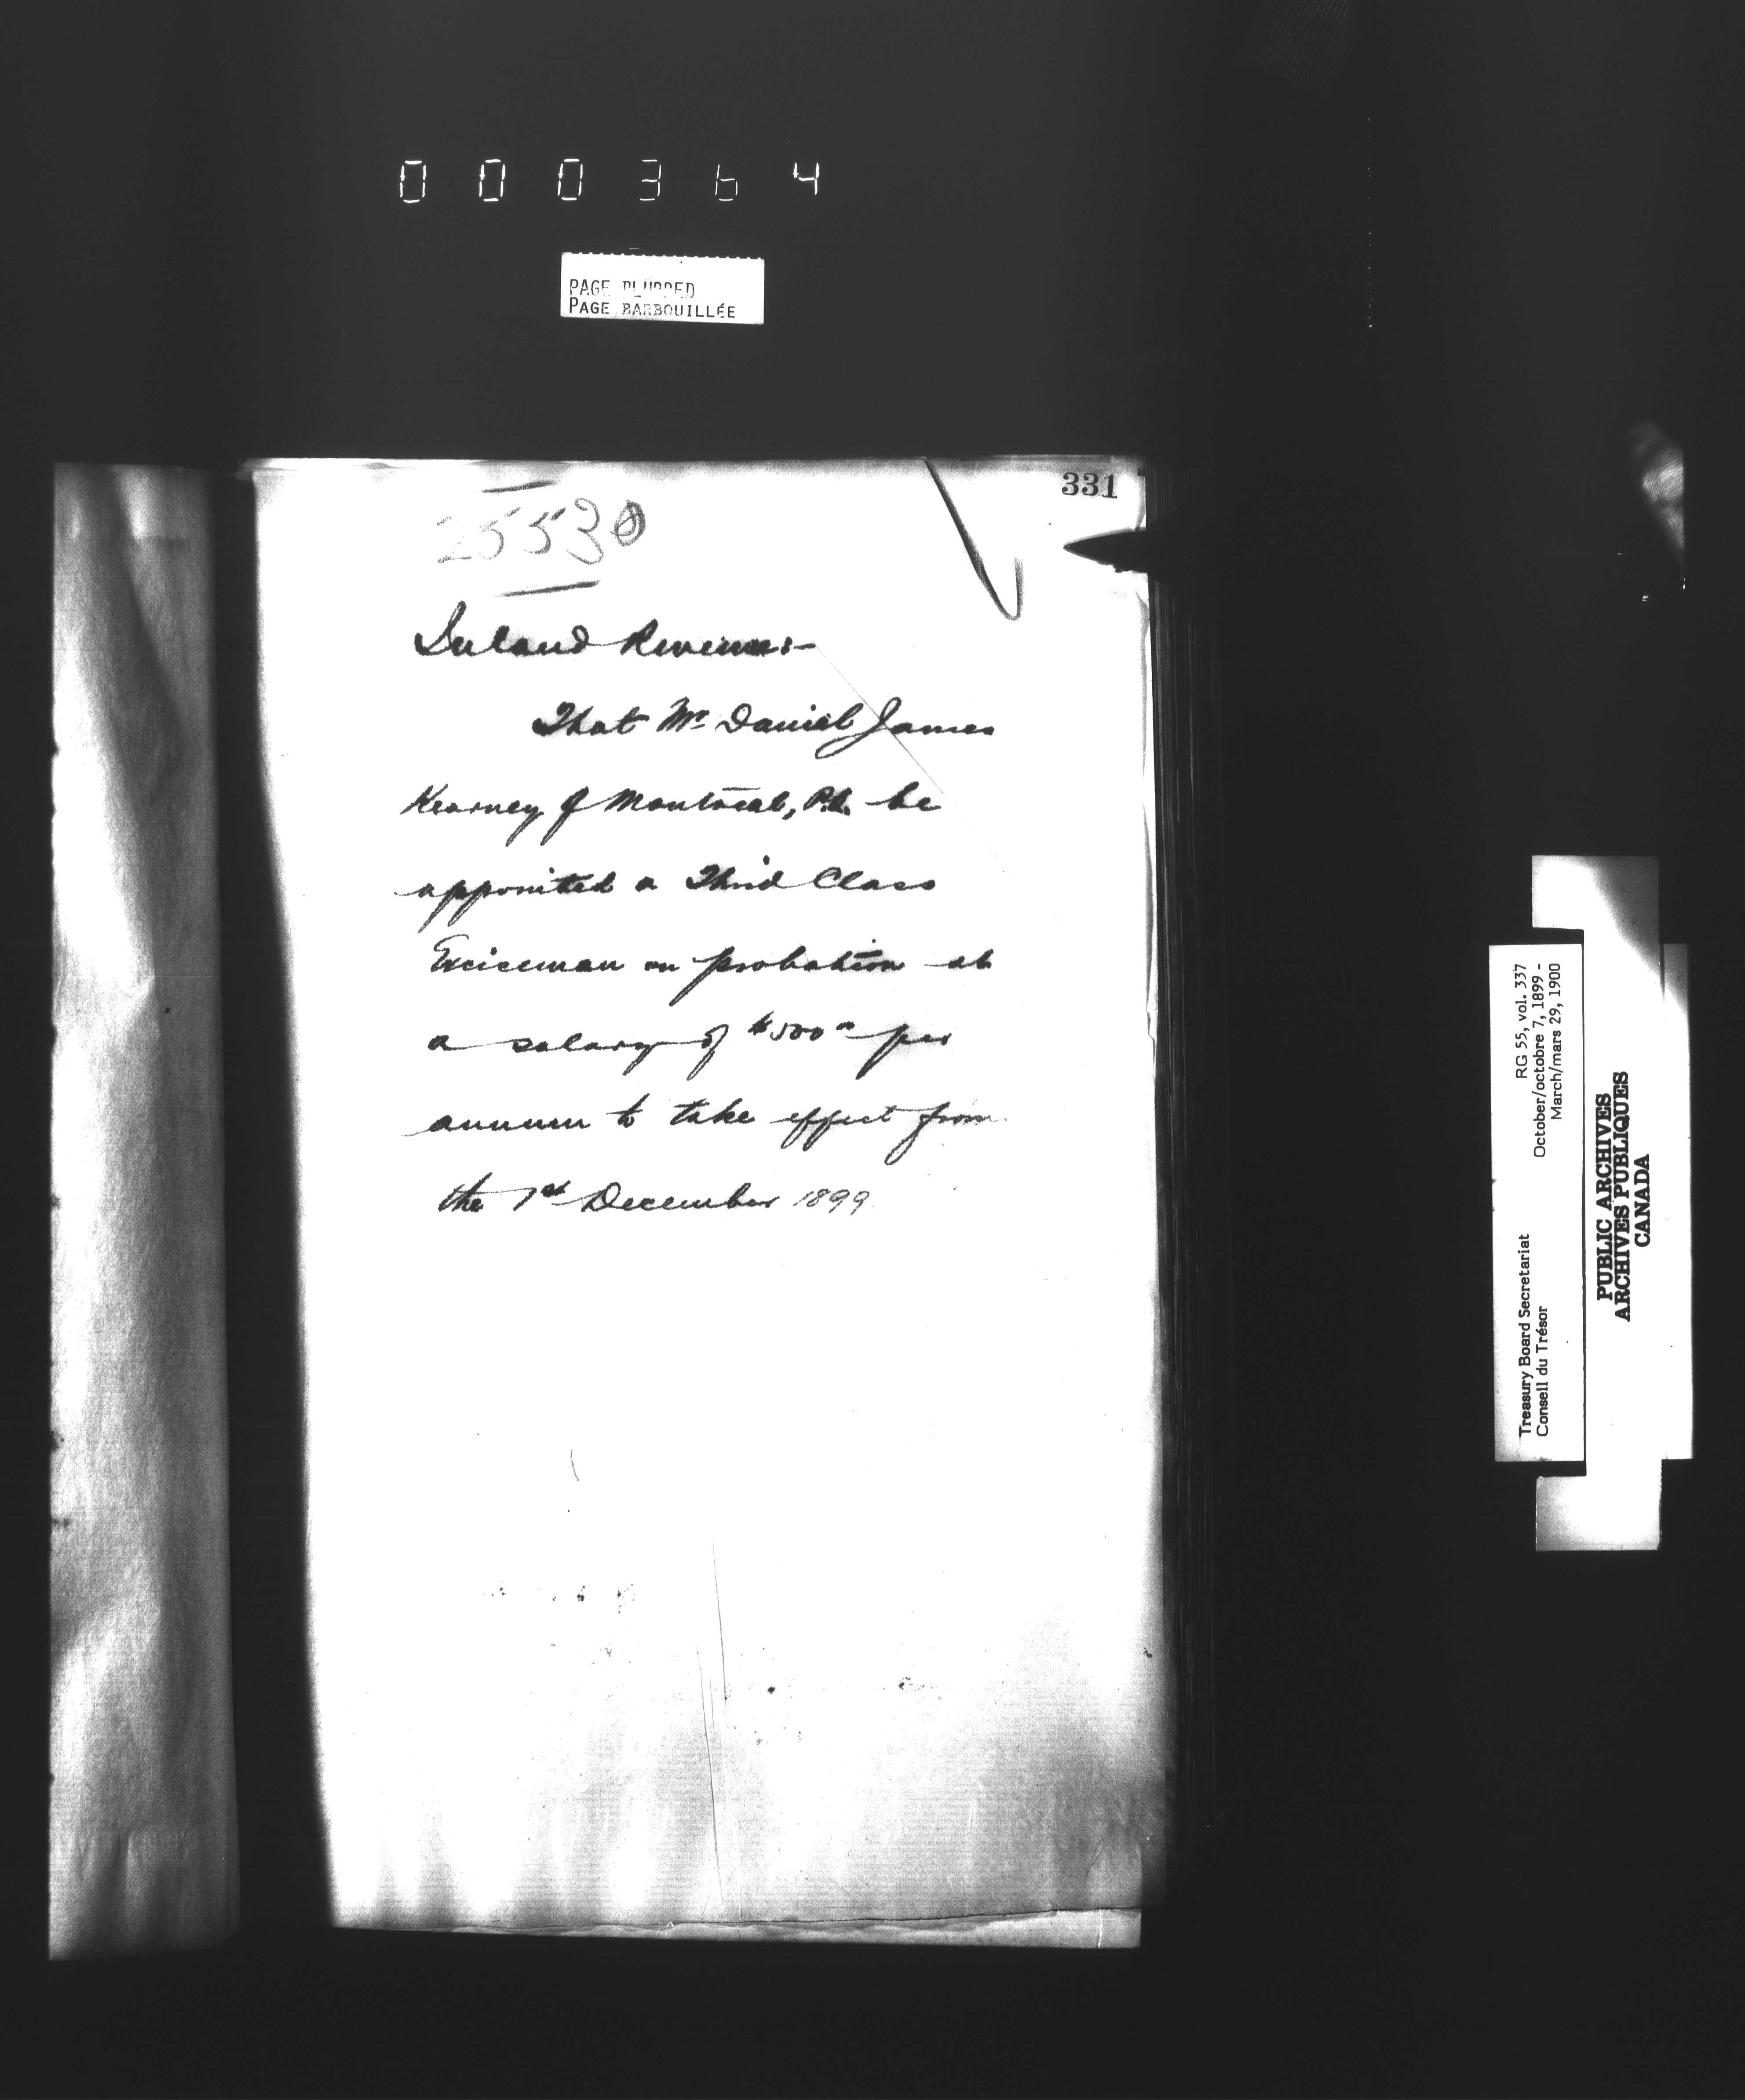 000364
PAGE BLURRED
PAGE BARBOUILLÉE
331
25530
Inland Revenue:-
That Mr Daniel James
Kearney of Montreal, P.Q. be
appointed a Third Class
Exciseman on probation at
a salary of $500 00 per
annum to take effect from
the 1st December 1899
Treasury Board Secretariat RG 55, vol. 337
Conseil du Trésor October/octobre 7, 1899 -
March/mars 29, 1900
PUBLIC ARCHIVES
ARCHIVES PUBLIQUES
CANADA